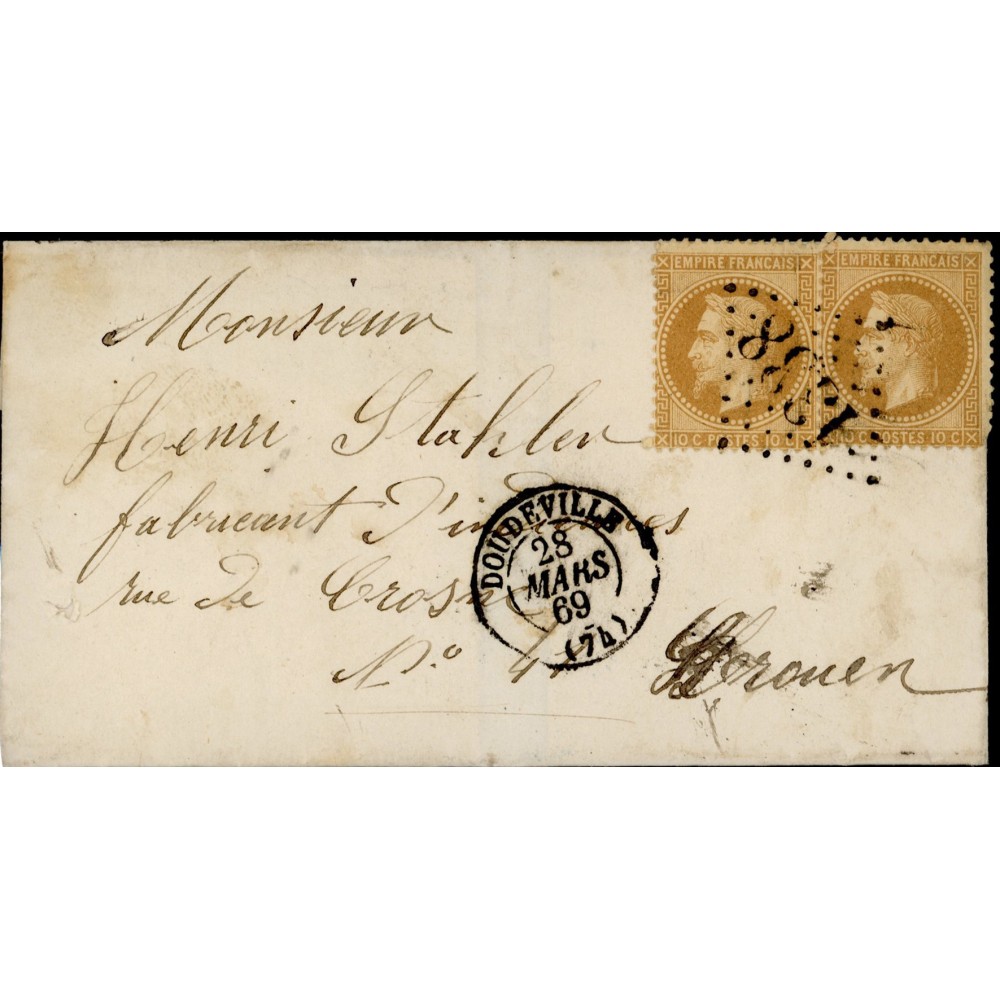 EMPIRE FRANÇAIS EMPIRE FRANÇAIS
10 C POSTES 10 C 10 C POSTES 10 C
Monsieur
Henri Stahler
fabricant d'indiennes
rue de Crosne
N° 4
Rouen
DOUDEVILLE
28
MARS
69
(74)